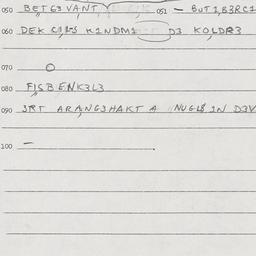 050 BETG3VANT, 051 – BUT1,B3RC1
060 DEK K1NDM1 D3 KOLDR3
070 O
080 F1SBENK3L3
090 3RT ARANG3HAKT A NUGL8 1N D3V
100 –